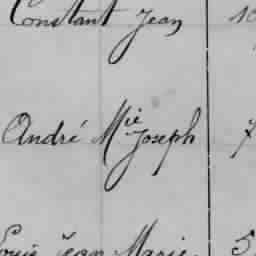 Constant Jean 10
André Mie Joseph 7
Louis Jean Marie 5